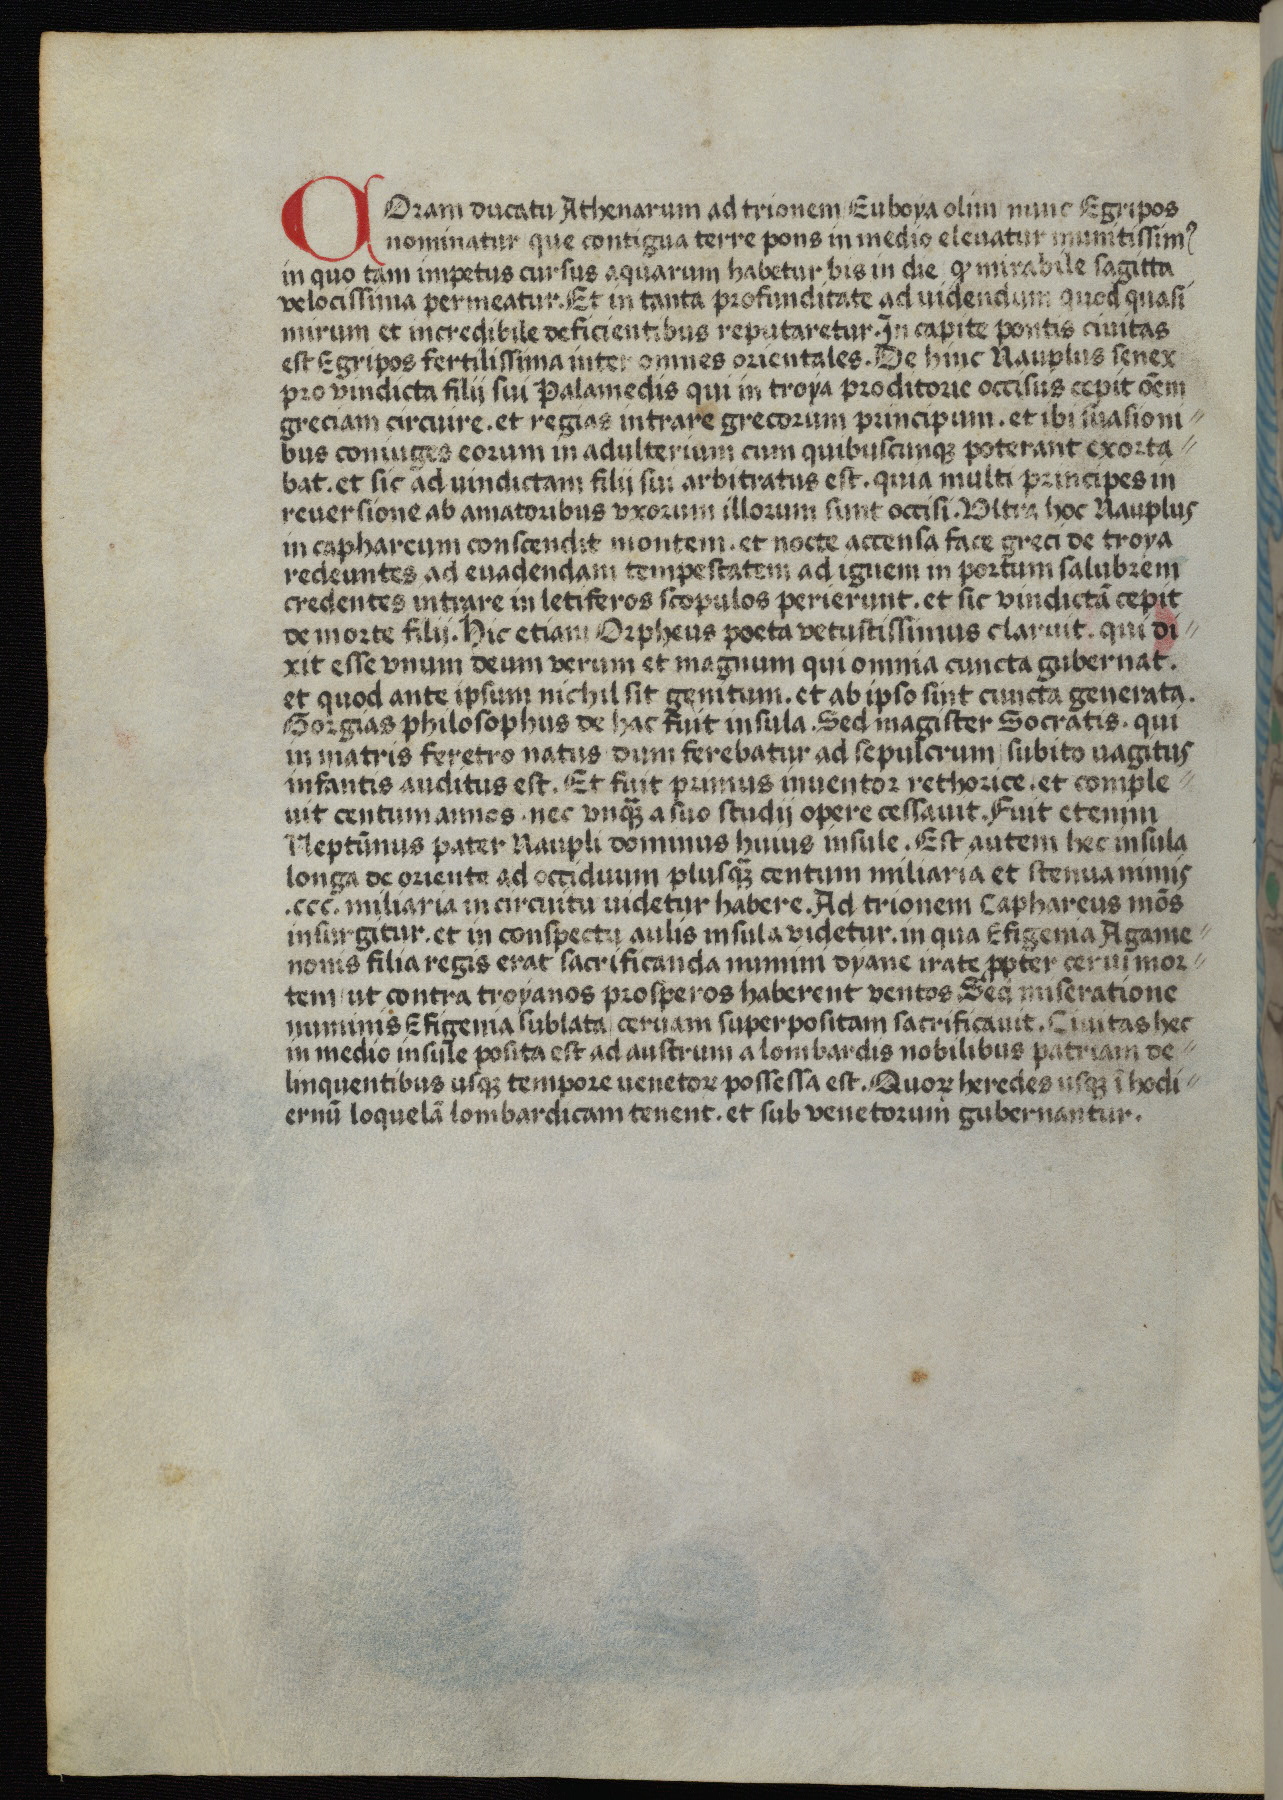 COram ducatu Athenarum ad trionem Euboya olim nunc Egripos
nominatur que contigua terre pons in medio eleuatur munitissimꝰ
in quo tam impetus cursus aquarum habetur bis in die ꝙ mirabile sagitta
velocissima permeatur. Et in tanta profunditate ad uidendum quod quasi
mirum et incredibile deficientibus reputaretur. In capite pontis ciuitas
est Egripos fertilissima inter omnes orientales. De hinc Nauplus senex
pro vindicta filij sui Palamedis qui in troya proditorie occisus cepit oẽm
greciam circuire. et regias intrare grecorum principum. et ibi suasioni⸗
bus coniuges eorum in adulterium cum quibuscunqꝫ poterant exorta⸗
bat. et sic ad uindictam filij sui arbitratus est. quia multi principes in
reuersione ab amatoribus vxorum illorum sunt occisi. Vltra hoc Nauplus
in caphareum conscendit montem. et nocte accensa face greci de troya
redeuntes ad euadendam tempestatem ad ignem in portum salubrem
credentes intrare in letiferos scopulos perierunt. et sic vindictã cepit
de morte filij. Hic etiam Orpheus poeta vetustissimus claruit. qui di⸗
xit esse vnum deum verum et magnum qui omnia cuncta gubernat.
et quod ante ipsum nichil sit genitum. et ab ipso sint cuncta generata.
Gorgias philosophus de hac fuit insula. Sed magister Socratis. qui
in matris feretro natus dum ferebatur ad sepulcrum subito uagitus
infantis auditus est. Et fuit primus inuentor rethorice. et comple⸗
uit centum annos. nec vnqꝫ̃ a suo studij opere cessauit. Fuit etenim
Neptũnus pater Naupli dominus huius insule. Est autem hec insula
longa de oriente ad occiduum plusqꝫ̃ centum miliaria et stenua nimis
.ccc. miliaria in circuitu uidetur habere. Ad trionem Caphareus mõs
insurgitur. et in conspectu aulis insula videtur. in qua Efigenia Agame⸗
nonis filia regis erat sacrificanda numini dyane irate ꝓpter cerui mor⸗
tem ut contra troyanos prosperos haberent ventos. Sed miseratione
numinis Efigenia sublata ceruam superpositam sacrificauit. Ciuitas hec
in medio insule posita est ad austrum a lombardis nobilibus patriam de⸗
linquentibus usqꝫ tempore uenetoꝝ possessa est. Quoꝝ heredes usqꝫ ĩ hodi⸗
ernũ loquelã lombardicam tenent. et sub venetorum gubernantur.